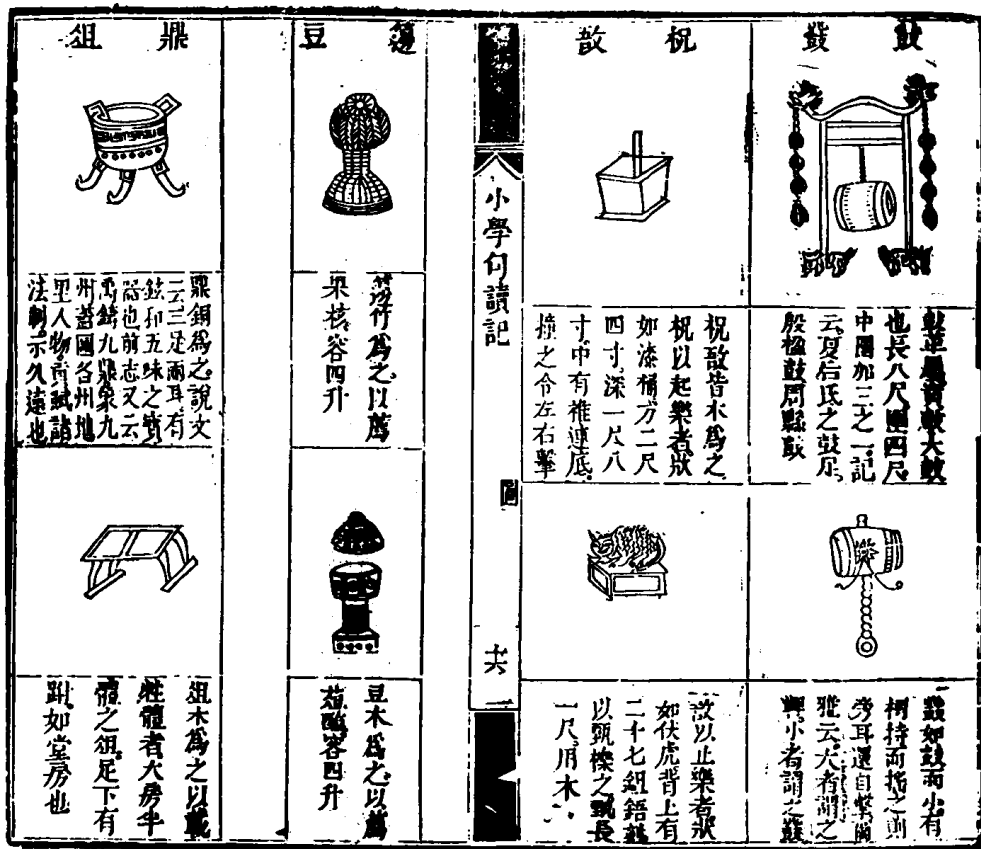 鼓 鼗
鼓革屬賁鼓大鼓
也長八尺圍四尺
中圍加三之一記
云夏后氏之鼓足
殷楹鼓周縣鼓
鼗如鼓而小有
柄持而搖之則
旁耳還自擊爾
雅云大者謂之
小者謂之鼗
柷 敔
柷敔皆木爲之
柷以起樂者狀
如漆桶方二尺
四寸深一尺八
寸中有椎連底
撞之令左右擊
敔以止樂者狀
如伏虎背上有
二十七鉏鋙
以甄櫟之甄長
一尺用木
小學句讀記
圖
十六
籩 豆
籩竹爲之以薦
果核容四升
豆木爲之以薦
菹醢容四升
鼎 俎
鼎銅爲之說文
云三足兩耳有
鉉和五味之寶
器也前志又云
禹鑄九鼎象九
州蓋圖各州地
里人物貢賦諸
法制示久遠也
俎木爲之以載
牲體者大房半
體之俎足下有
跗如堂房也